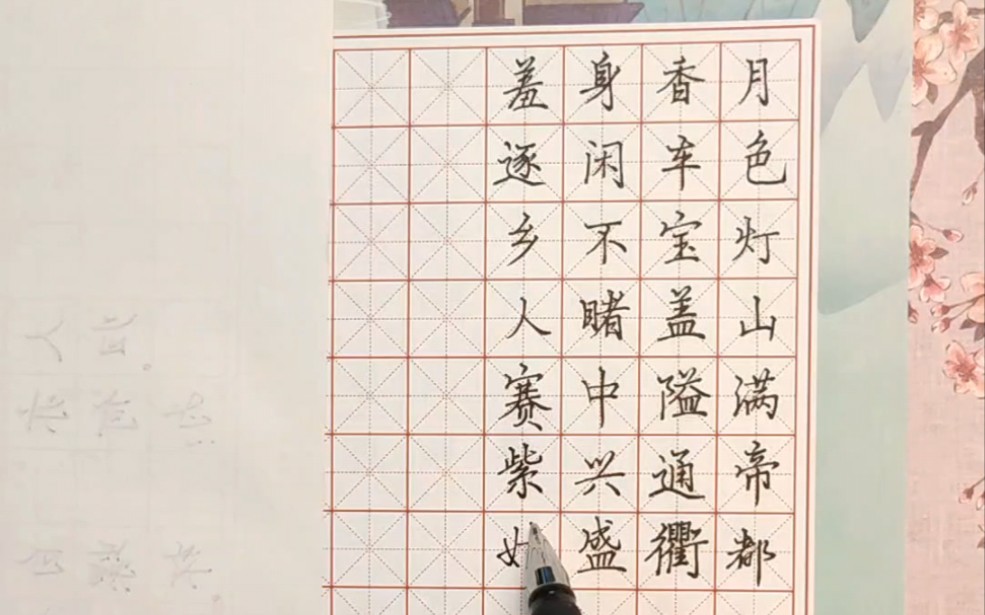 月色灯山满帝都
香车宝盖隘通衢
身闲不睹中兴盛
羞逐乡人赛紫